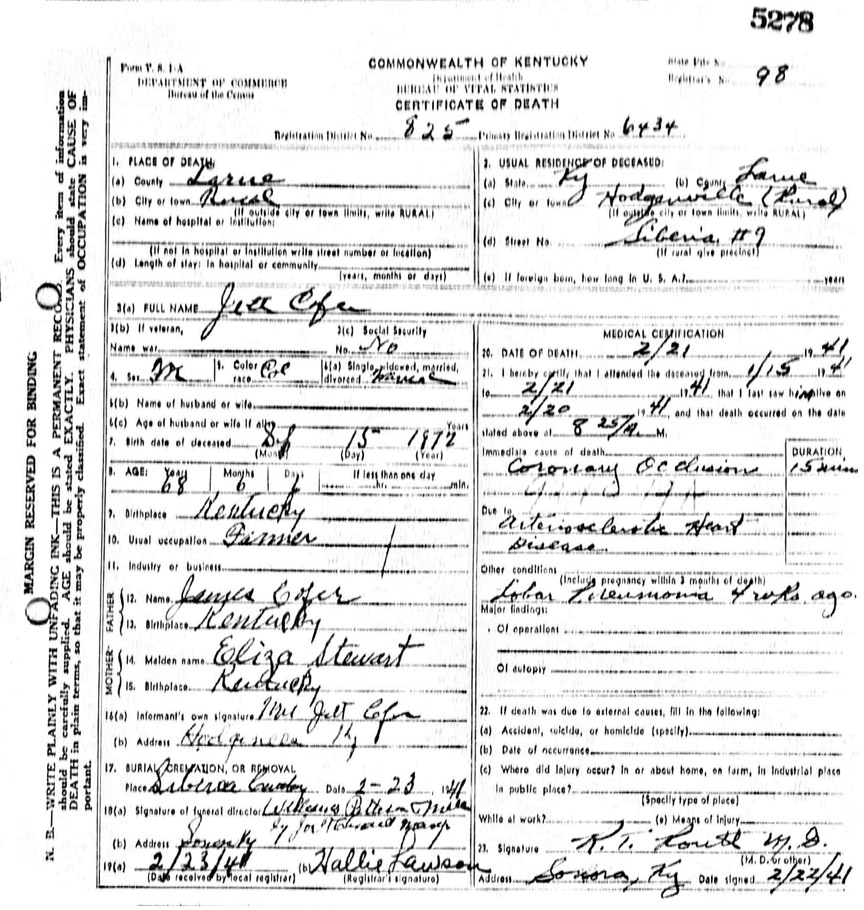 5278
Form V. S. 1-A
DEPARTMENT OF COMMERCE
Bureau of the Census
COMMONWEALTH OF KENTUCKY
Department of Health
BUREAU OF VITAL STATISTICS
CERTIFICATE OF DEATH
State File No.
Registrar's No. 98
Registration District No. 825 Primary Registration District No. 6434
MARGIN RESERVED FOR BINDING
N. B.—WRITE PLAINLY WITH UNFADING INK—THIS IS A PERMANENT RECORD. Every item of information
should be carefully supplied. AGE should be stated EXACTLY. PHYSICIANS should state CAUSE OF
DEATH in plain terms, so that it may be properly classified. Exact statement of OCCUPATION is very im-
portant.
1. PLACE OF DEATH
(a) County Larue
(b) City or town Rural
(If outside city or town limits, write RURAL)
(c) Name of hospital or institution:
(If not in hospital or institution write street number or location)
(d) Length of stay: In hospital or community
(years, months or days)
2. USUAL RESIDENCE OF DECEASED:
(a) State Ky (b) County Larue
(c) City or town Hodgenville (Rural)
(If outside city or town limits, write RURAL)
(d) Street No. Siberia #9
(If rural give precinct)
(e) If foreign born, how long in U. S. A.? years
3(a) FULL NAME Jett Cofer
3(b) If veteran,
Name war
3(c) Social Security
No. No
4. Sex M
5. Color
race Col
6(a) Single, widowed, married,
divorced
6(b) Name of husband or wife
6(c) Age of husband or wife if alive Years
7. Birth date of deceased 15
(Month) (Day) (Year)
8. AGE: Years Months Days If less than one day
68 6 hr. min.
9. Birthplace Kentucky
10. Usual occupation Farmer
11. Industry or business
FATHER
12. Name James Cofer
13. Birthplace Kentucky
MOTHER
14. Maiden name Eliza Stewart
15. Birthplace Kentucky
16(a) Informant's own signature Jett Cofer
(b) Address Ky
17. BURIAL, CREMATION, OR REMOVAL
Place Siberia Date 2-23, 1941
18(a) Signature of funeral director Williams
(b) Address Sonora Ky
19(a) 2/23/41 (b) Hallie Lawson
(Date received by local registrar) (Registrar's signature)
MEDICAL CERTIFICATION
20. DATE OF DEATH 2/21 1941
21. I hereby certify that I attended the deceased from 1/15 1941
to 2/21 1941, that I last saw him alive on
2/20 1941 and that death occurred on the date
stated above at 8 25/A. M.
Immediate cause of death
Coronary Occlusion
DURATION
15 min
Due to
Arteriosclerotic Heart
Disease
Other conditions
(Include pregnancy within 3 months of death)
Lobar Pneumonia 4 wks. ago.
Major findings:
Of operations
Of autopsy
22. If death was due to external causes, fill in the following:
(a) Accident, suicide, or homicide (specify)
(b) Date of occurrence
(c) Where did injury occur? In or about home, on farm, in industrial place
in public place?
(Specify type of place)
While at work? (e) Means of injury
23. Signature R. T. Routt M. D.
(M. D. or other)
Address Sonora, Ky Date signed 2/22/41